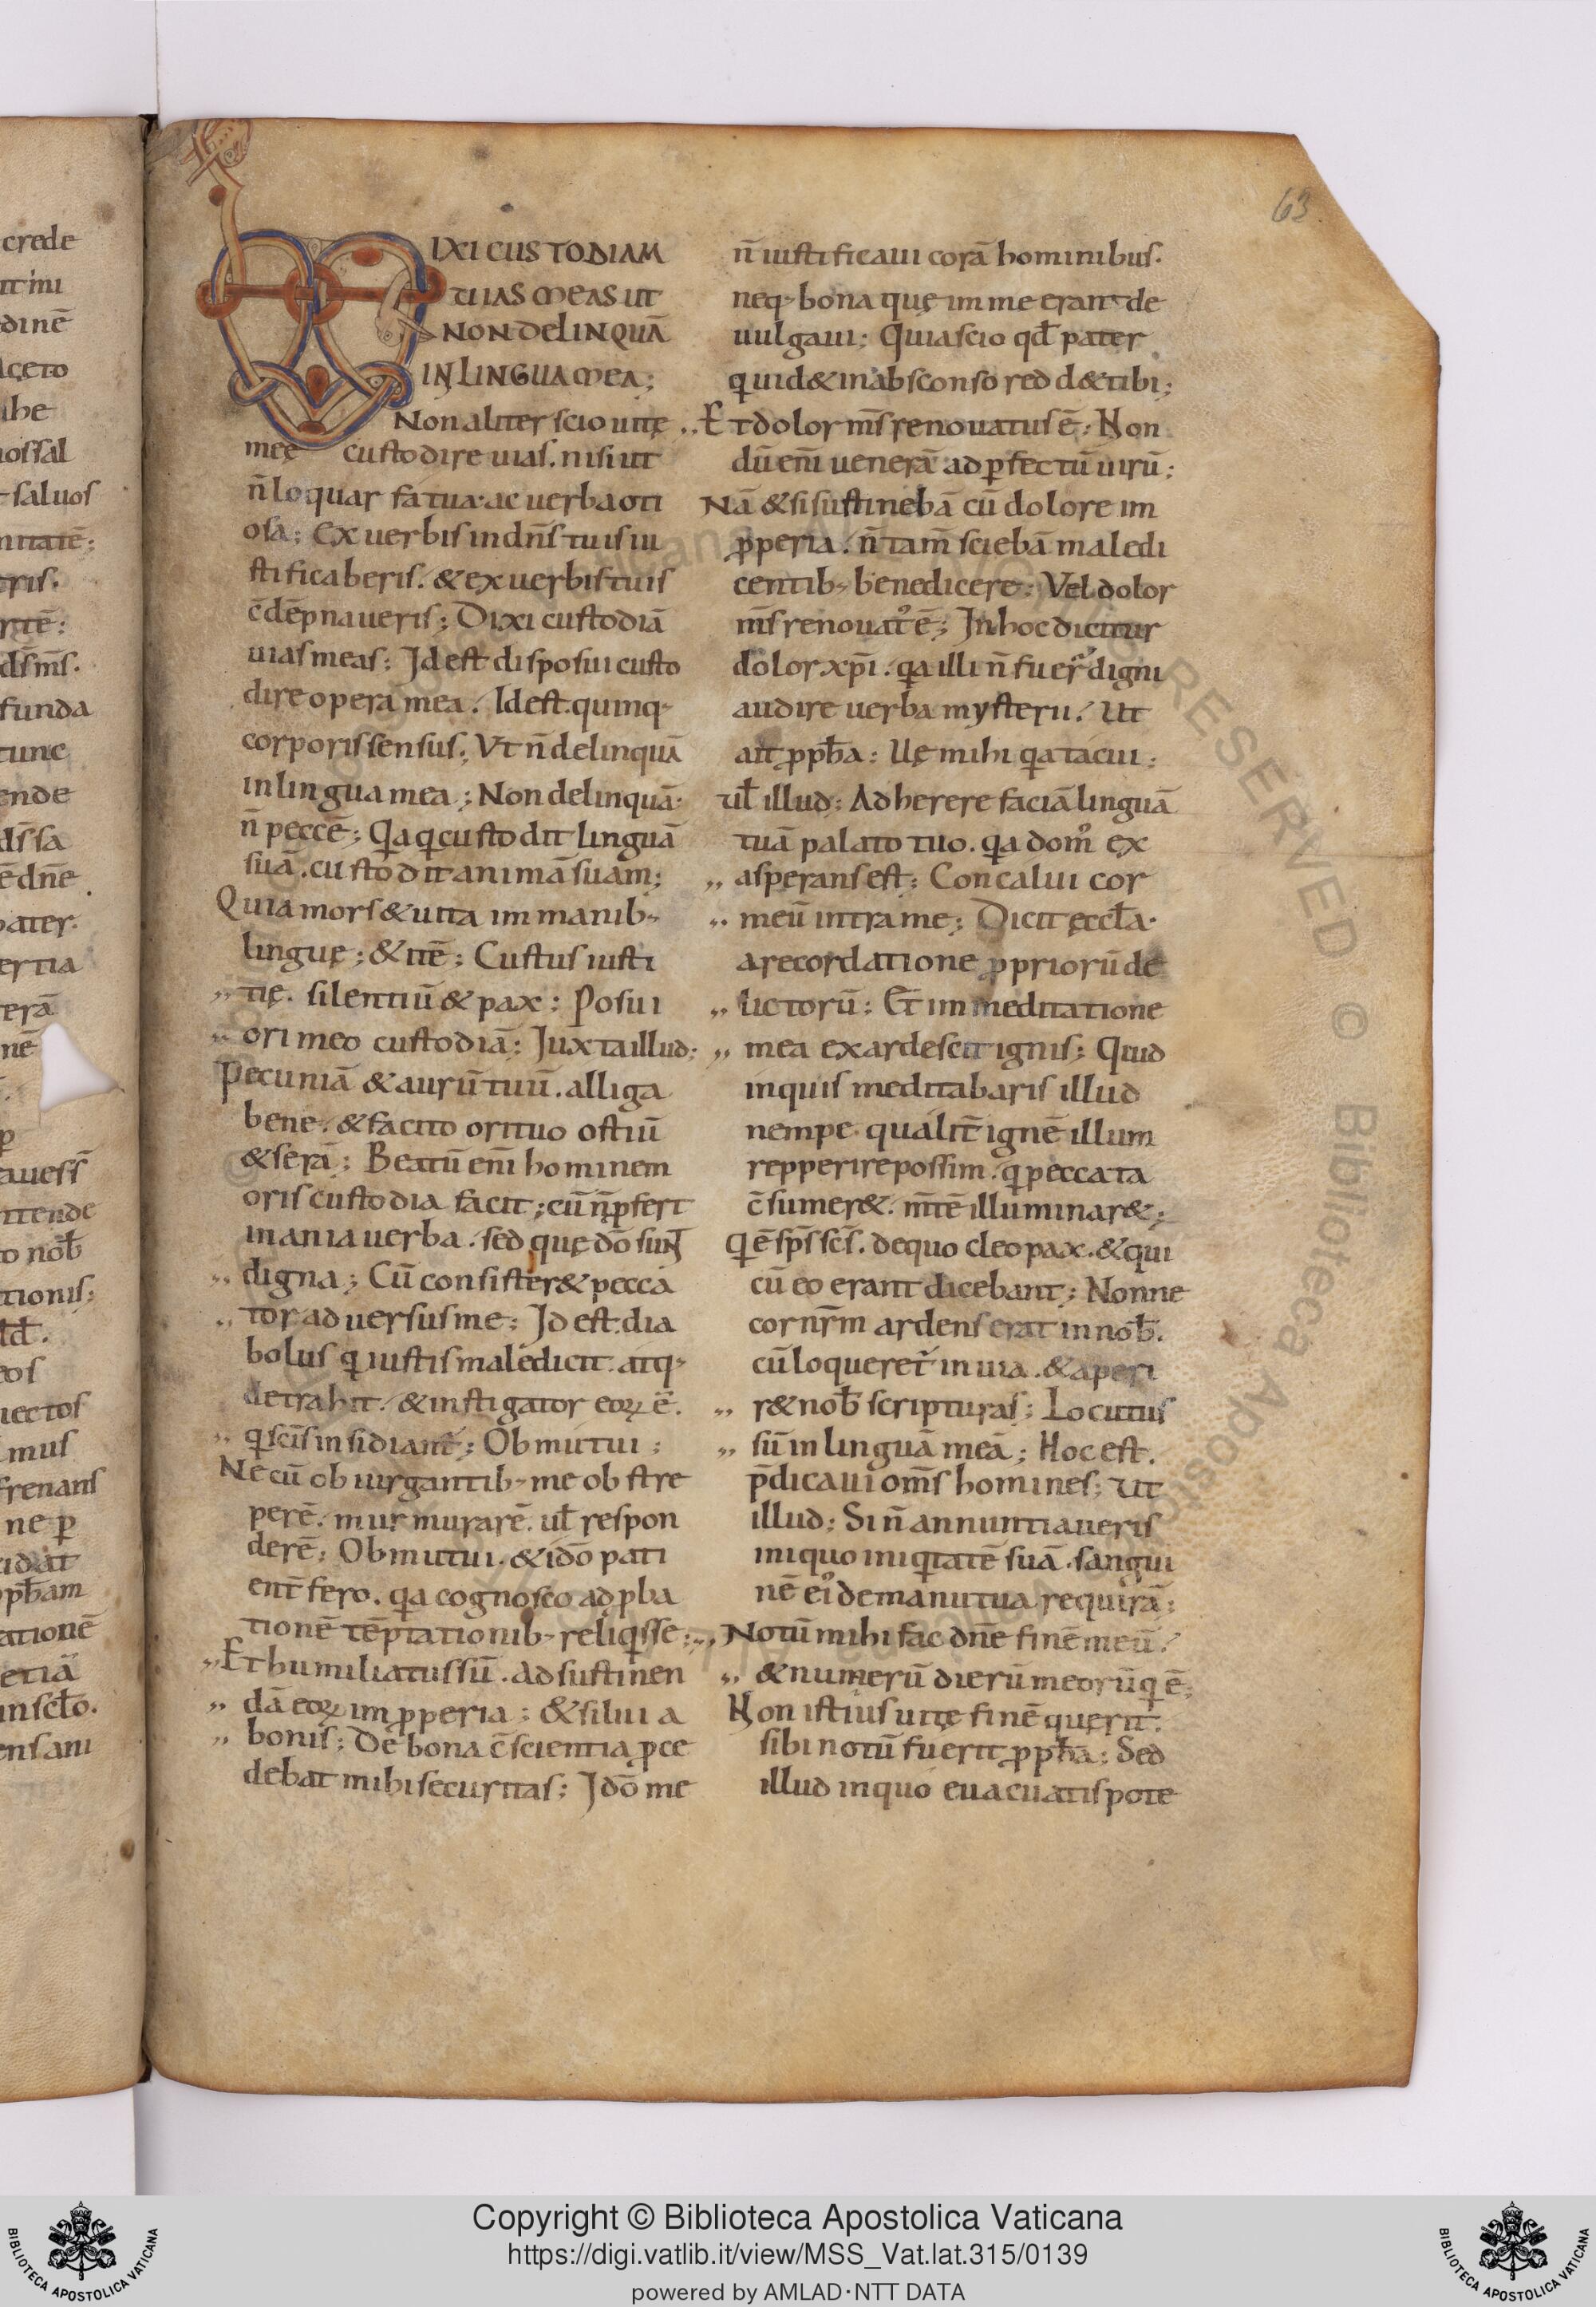 crede
dinē
aceto
ihe
saluos
mitatē;
tris.
funda
tunc
ende
ds sa
ē dnē
pater.
ertia
erā
nē
ꝑ
auess̄
ttende
tionis;
iectos
mus
frenans
ne ꝑ
cidat
ationē
etiā
63
DIXI CUSTODIAM
UIAS MEAS UT
NON DELINQUĀ
IN LINGUA MEA;
Non aliter scio uitę
meę custodire uias. nisi ut
n̄ loquar fatua. ac uerba oti
osa; Ex uerbis indn̄s tuis iu
stificaberis. & ex uerbis tuis
c̄dēpnaueris; Dixi custodiā
uias meas; Id est disposui custo
dire opera mea. Id est. quinq;
corporis sensus; Vt n̄ delinquā
in lingua mea; Non delinquā.
n̄ peccē; Qa q custodit linguā
suā. custodit animā suam;
Quia mors & uita im manib;
linguę; & itē; Custus iusti
,, tię. silentiū & pax; Posui
,, ori meo custodiā; Iuxta illud;
Pecuniā & aurū tuū. alliga
bene. & facito ori tuo ostiū
& serā; Beatū eni̅ hominem
oris custodia facit; cū n̄ ꝓfert
inania uerba. sed quę dō sunt
,, digna; Cū consister& pecca
,, tor aduersus me; Id est. dia
bolus q iustis maledicit. atq;
detrahit. & instigator eoꝝ ē.
,, q sc̄is insidiant̄; Obmutui;
Ne cū obiurgantib; me obstre
perē. murmurarē. ul̄ respon
derē; Obmutui. & idō pati
ent̄ fero. qa cognosco ad ꝓba
tionē tēptationib; reliqisse;
,, Et humiliatus sū. ad sustinen
,, dā eoꝝ imꝓperia; & silui a
,, bonis; De bona c̄scientia ꝓce
debat mihi securitas; Idō me
n̄ iustificaui corā hominibus.
neq; bona quę im me erant de
uulgaui; Quia scio qd̄ pater
quid & in absconso redd& tibi;
,, Et dolor m̄s renouatus ē; Non
dū eni̅ uenerā ad ꝑfectū uirū;
Nā & si sustinebā cū dolore im
ꝓperia. n̄ tam̄ sciebā maledi
centib; benedicere; Vel dolor
m̄s renouat᾽ ē; In hoc dicitur
dolor xp̄i. qa illi n̄ fuer̄ digni
audire uerba mysterii. Ut
ait ꝓph̄a; Uę mihi qa tacui;
ul̄ illud; Adherere faciā linguā
tuā palato tuo. qa dom᾽ ex
,, asperans est; Concalui cor
,, meū intra me; Dicit ęccl̄a.
a recordatione ꝓpriorū de
,, lictorū; Et im meditatione
,, mea exardescit ignis; Quid
inquis meditabaris illud
nempe. qualit̄ ignē illum
repperire possim. q peccata
c̄sumer&. m̄tē illuminar&;
Q ē sp̄s sc̄s. de quo cleopax. & qui
cū eo erant dicebant; Nonne
cor nr̄m ardens erat in nob̄.
cū loqueret᾽ in uia. & aperi
,, r& nob̄ scripturas; Locutus
,, sū in linguā meā; Hoc est.
p̄dicaui om̄s homines; Ut
illud; Si n̄ annuntiaueris
iniquo iniqitatē suā. sangui
nē ei᾽ de manu tua requirā;
,, Notū mihi fac dn̄e finē meū.
,, & numerū dierū meorū q ē;
Non istius uitę finē querit.
sibi notū fuerit ꝓph̄a; Sed
illud in quo euacuatis pote
Copyright © Biblioteca Apostolica Vaticana
https://digi.vatlib.it/view/MSS_Vat.lat.315/0139
powered by AMLAD·NTT DATA
BIBLIOTECA APOSTOLICA VATICANA
BIBLIOTECA APOSTOLICA VATICANA